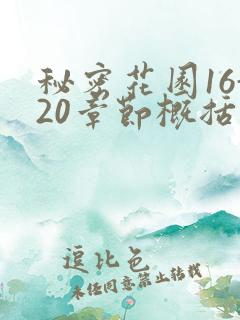 秘密花园16-
20章节概括
逗比色
未经同意禁止转载